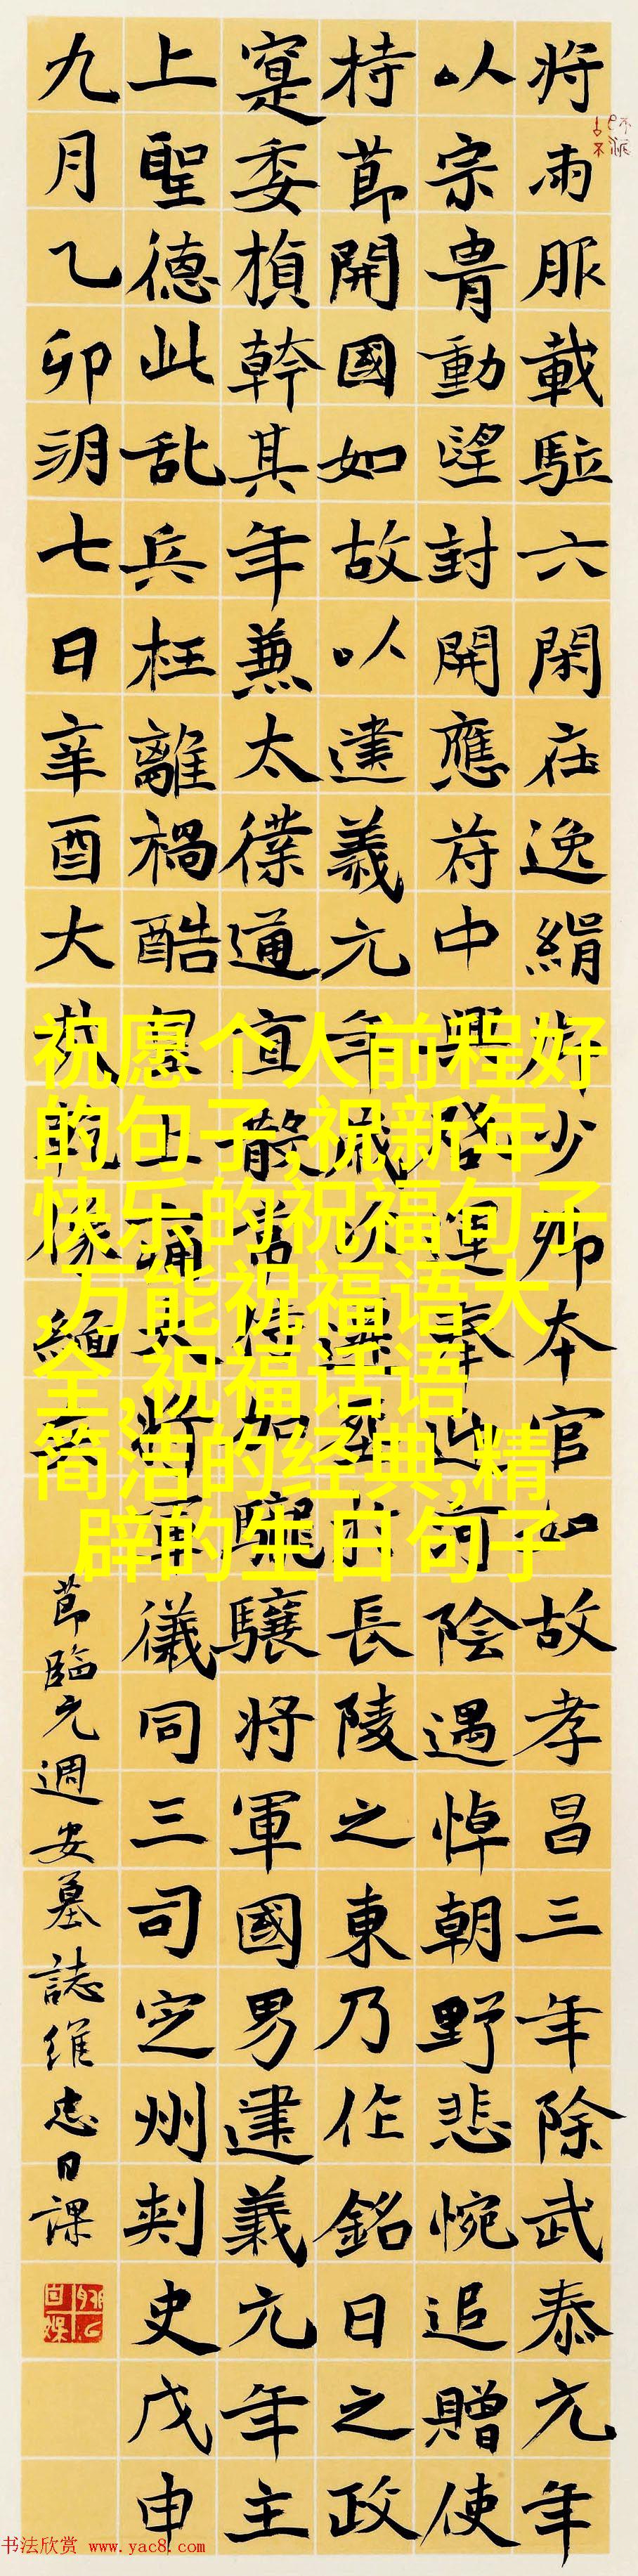 将雨服載駈六閑在逸絹少卿本官如故孝昌三年除武泰元年
以宗胄動望封開應苻中興啓運奉迎河陰遇悼朝野悲惋追贈使
持節開國如故以建義元年歲次塟於長陵之東乃作銘日之政
寔委楨幹其年兼太僕通直散常侍加驤将軍國男建義元年主
上聖德此乱兵枉離禍酷上痛将軍儀同三司定州刺史戊申
九月乙卯朔七日辛酉大哉乾像緬
節臨元週安墓誌維忠日課
祝愿个人前程好
的句子,祝新年
快乐的祝福句子
,万能祝福语大
全,祝福话语
简洁的经典,精
辟的生日句子
书法欣赏 www.yac8.com